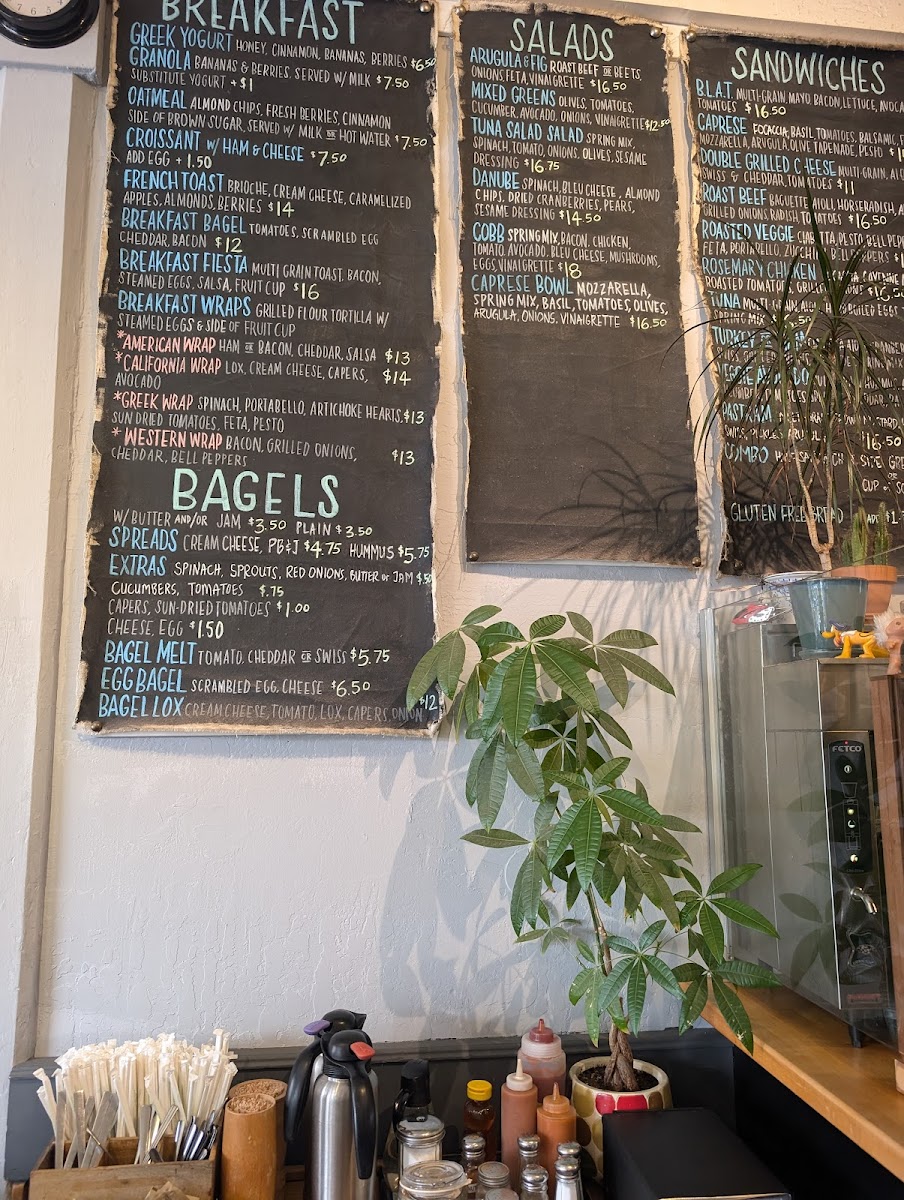 BREAKFAST
GREEK YOGURT HONEY, CINNAMON, BANANAS, BERRIES $6.50
GRANOLA BANANAS & BERRIES. SERVED W/ MILK $7.50
SUBSTITUTE YOGURT + $1
OATMEAL ALMOND CHIPS, FRESH BERRIES, CINNAMON
SIDE OF BROWN SUGAR, SERVED W/ MILK OR HOT WATER $7.50
CROISSANT W/ HAM & CHEESE $7.50
ADD EGG + 1.50
FRENCH TOAST BRIOCHE, CREAM CHEESE, CARAMELIZED
APPLES, ALMONDS, BERRIES $14
BREAKFAST BAGEL TOMATOES, SCRAMBLED EGG
CHEDDAR, BACON $12
BREAKFAST FIESTA MULTI GRAIN TOAST, BACON,
STEAMED EGGS, SALSA, FRUIT CUP $16
BREAKFAST WRAPS GRILLED FLOUR TORTILLA W/
STEAMED EGGS & SIDE OF FRUIT CUP
*AMERICAN WRAP HAM OR BACON, CHEDDAR, SALSA $13
*CALIFORNIA WRAP LOX, CREAM CHEESE, CAPERS, $14
AVOCADO
*GREEK WRAP SPINACH, PORTABELLO, ARTICHOKE HEARTS, $13
SUN DRIED TOMATOES, FETA, PESTO
*WESTERN WRAP BACON, GRILLED ONIONS, $13
CHEDDAR, BELL PEPPERS
BAGELS
W/ BUTTER AND/OR JAM $3.50 PLAIN $3.50
SPREADS CREAM CHEESE, PB&J $4.75 HUMMUS $5.75
EXTRAS SPINACH, SPROUTS, RED ONIONS, BUTTER OR JAM $.50
CUCUMBERS, TOMATOES $.75
CAPERS, SUN-DRIED TOMATOES $1.00
CHEESE, EGG $1.50
BAGEL MELT TOMATO, CHEDDAR OR SWISS $5.75
EGG BAGEL SCRAMBLED EGG, CHEESE $6.50
BAGEL LOX CREAM CHEESE, TOMATO, LOX, CAPERS, ONION $12
SALADS
ARUGULA & FIG ROAST BEEF OR BEETS,
ONIONS, FETA, VINAIGRETTE $16.50
MIXED GREENS OLIVES, TOMATOES,
CUCUMBER, AVOCADO, ONIONS, VINAIGRETTE $12.50
TUNA SALAD SALAD SPRING MIX,
SPINACH, TOMATO, ONIONS, OLIVES, SESAME
DRESSING $16.75
DANUBE SPINACH, BLEU CHEESE, ALMOND
CHIPS, DRIED CRANBERRIES, PEARS,
SESAME DRESSING $14.50
COBB SPRING MIX, BACON, CHICKEN,
TOMATO, AVOCADO, BLEU CHEESE, MUSHROOMS,
EGGS, VINAIGRETTE $18
CAPRESE BOWL MOZZARELLA,
SPRING MIX, BASIL, TOMATOES, OLIVES,
ARUGULA, ONIONS, VINAIGRETTE $16.50
SANDWICHES
B.L.A.T. MULTI-GRAIN, MAYO, BACON, LETTUCE,
TOMATOES $16.50
CAPRESE FOCACCIA, BASIL, TOMATOES, BALSAMIC,
MOZZARELLA, ARUGULA, OLIVE TAPENADE, PESTO
DOUBLE GRILLED CHEESE MULTI-GRAIN,
SWISS & CHEDDAR, TOMATOES $11
ROAST BEEF BAGUETTE, AIOLI, HORSERADISH,
GRILLED ONIONS, RADISH, TOMATOES $16.50
ROASTED VEGGIE CIABATTA, PESTO, BELL
FETA, PORTABELLO,
ROSEMARY CHICKEN
ROASTED TOMATOES, $16.50
TUNA
SPRING MIX
TURKEY
VEGGIE AVOCADO
PASTRAMI
SWISS, PICKLES, $16.50
COMBO
CUP
GLUTEN FREE BREAD
FETCO